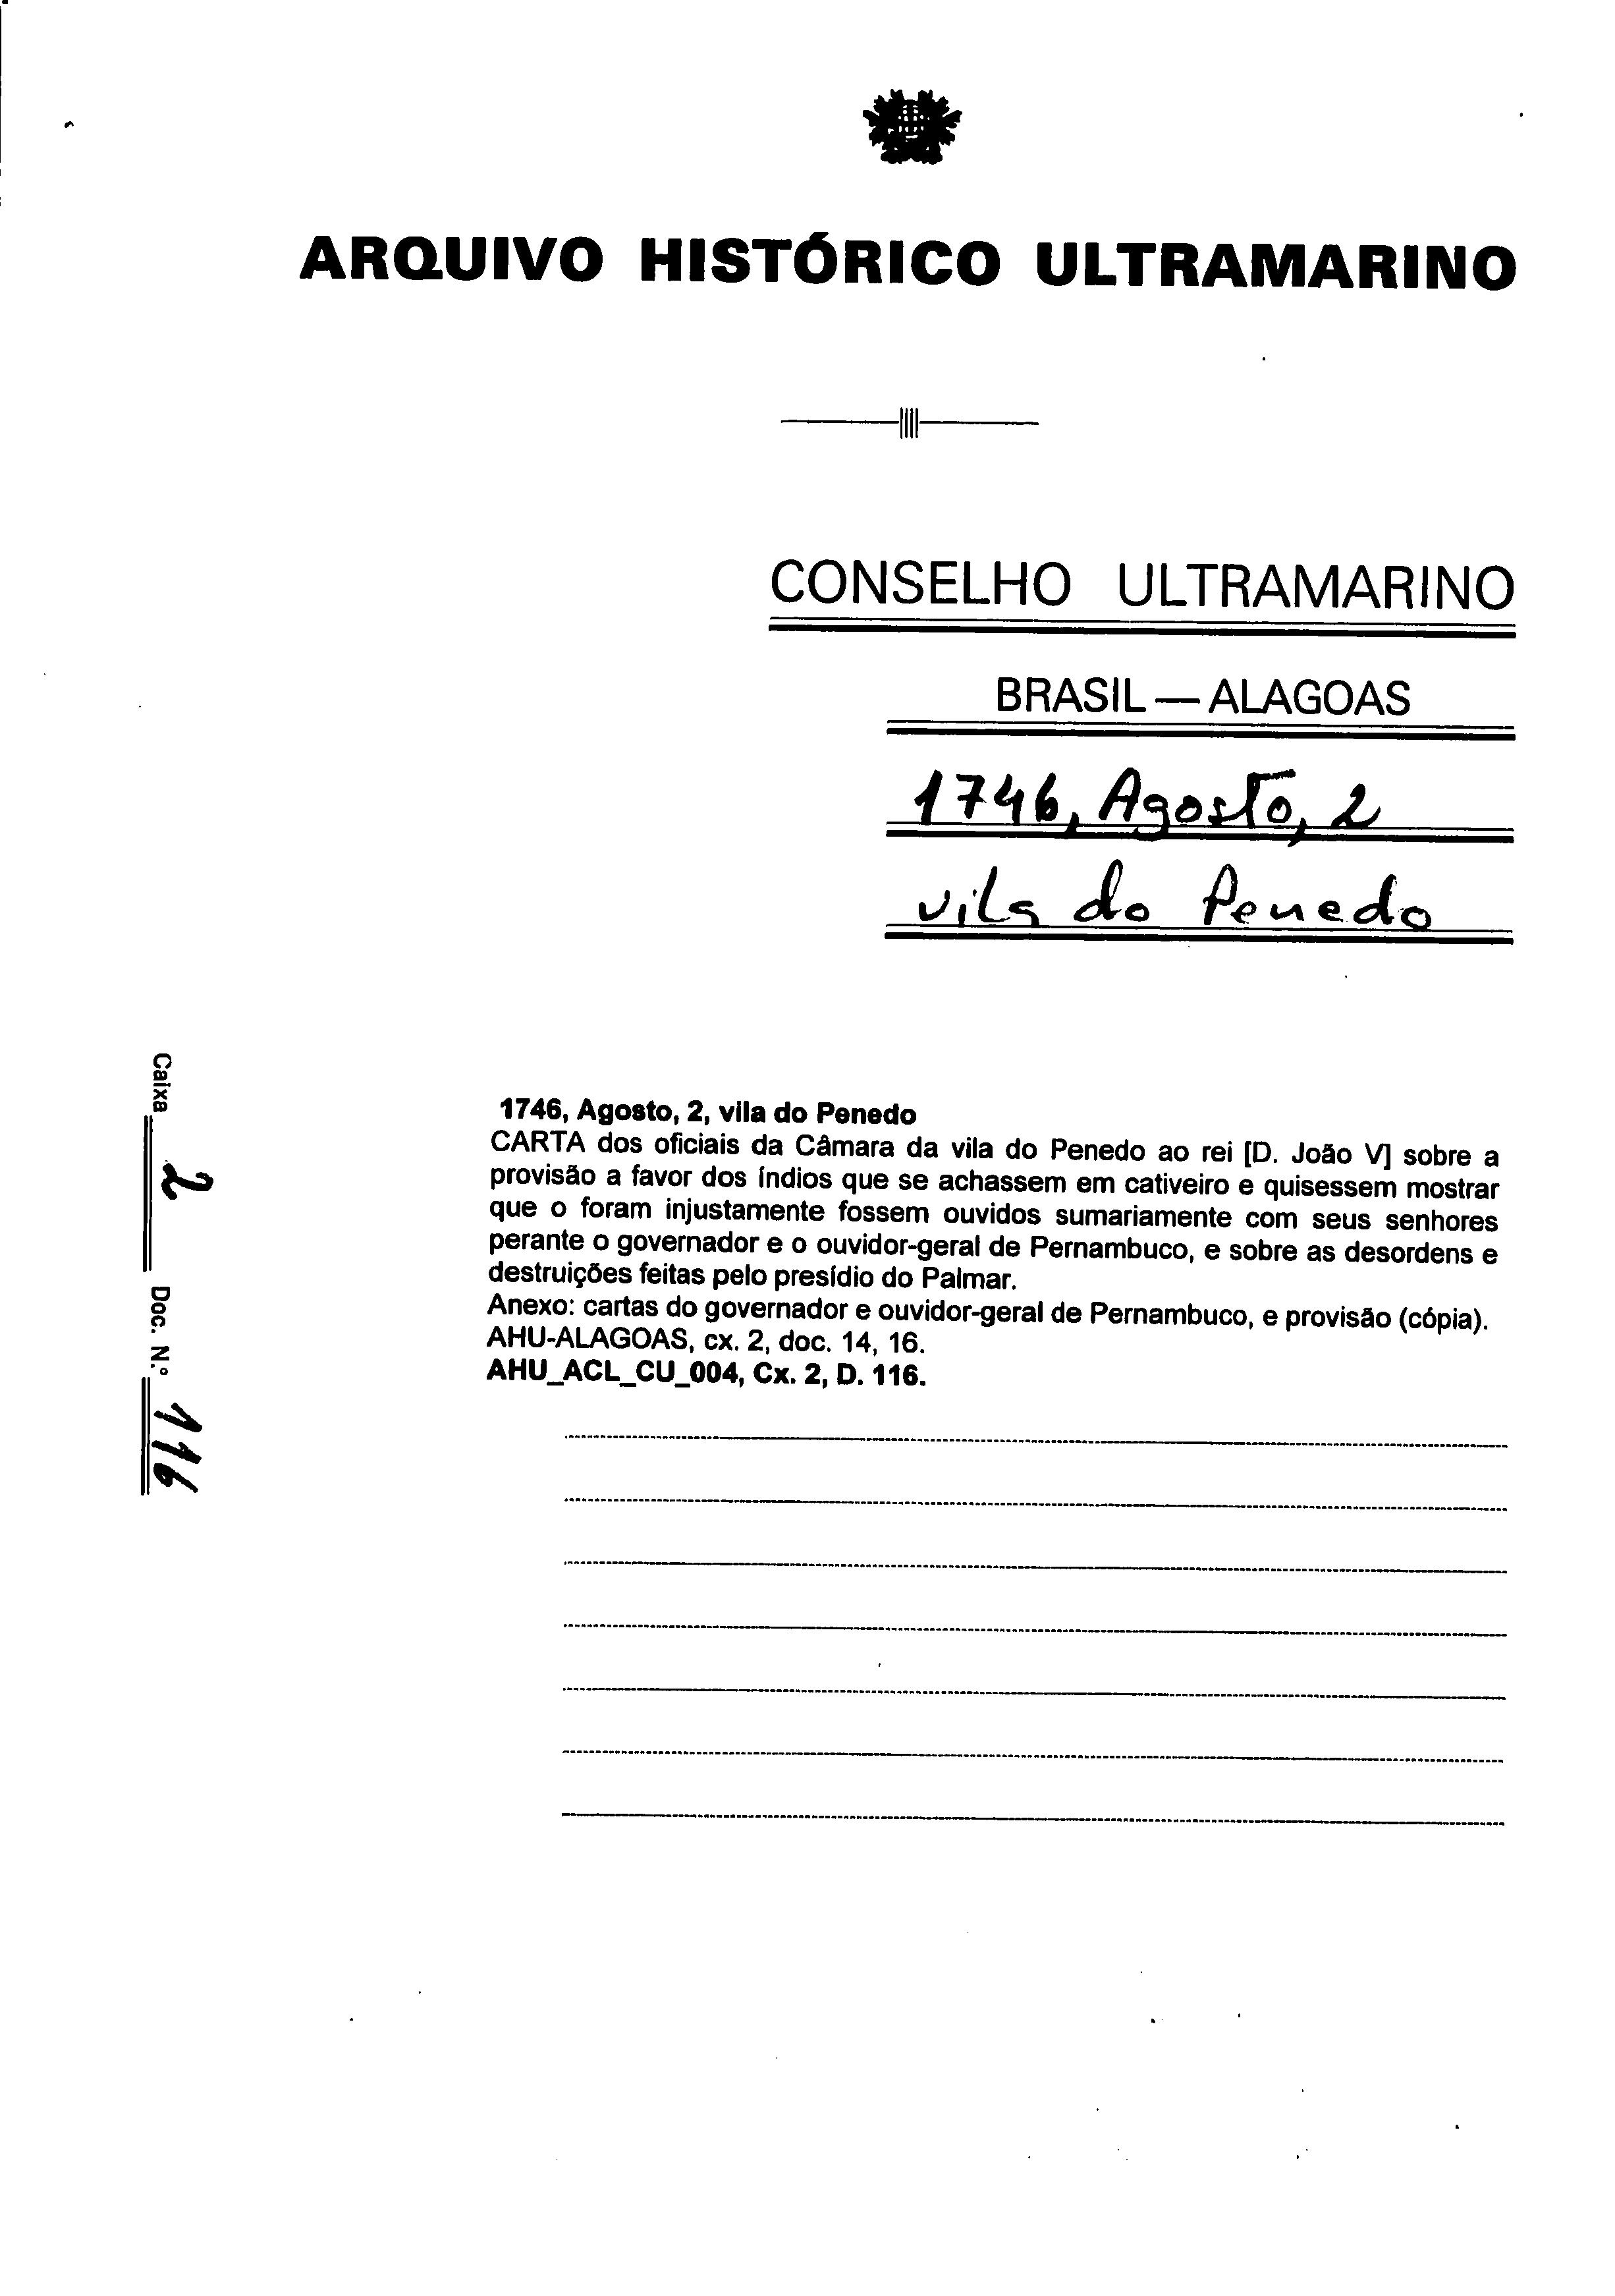 ARQUIVO HISTÓRICO ULTRAMARINO
CONSELHO ULTRAMARINO
BRASIL — ALAGOAS
1746, Agosto, 2
vila do Penedo
Caixa 2 Doc. N.º 116
1746, Agosto, 2, vila do Penedo
CARTA dos oficiais da Câmara da vila do Penedo ao rei [D. João V] sobre a
provisão a favor dos índios que se achassem em cativeiro e quisessem mostrar
que o foram injustamente fossem ouvidos sumariamente com seus senhores
perante o governador e o ouvidor-geral de Pernambuco, e sobre as desordens e
destruições feitas pelo presídio do Palmar.
Anexo: cartas do governador e ouvidor-geral de Pernambuco, e provisão (cópia).
AHU-ALAGOAS, cx. 2, doc. 14, 16.
AHU_ACL_CU_004, Cx. 2, D. 116.